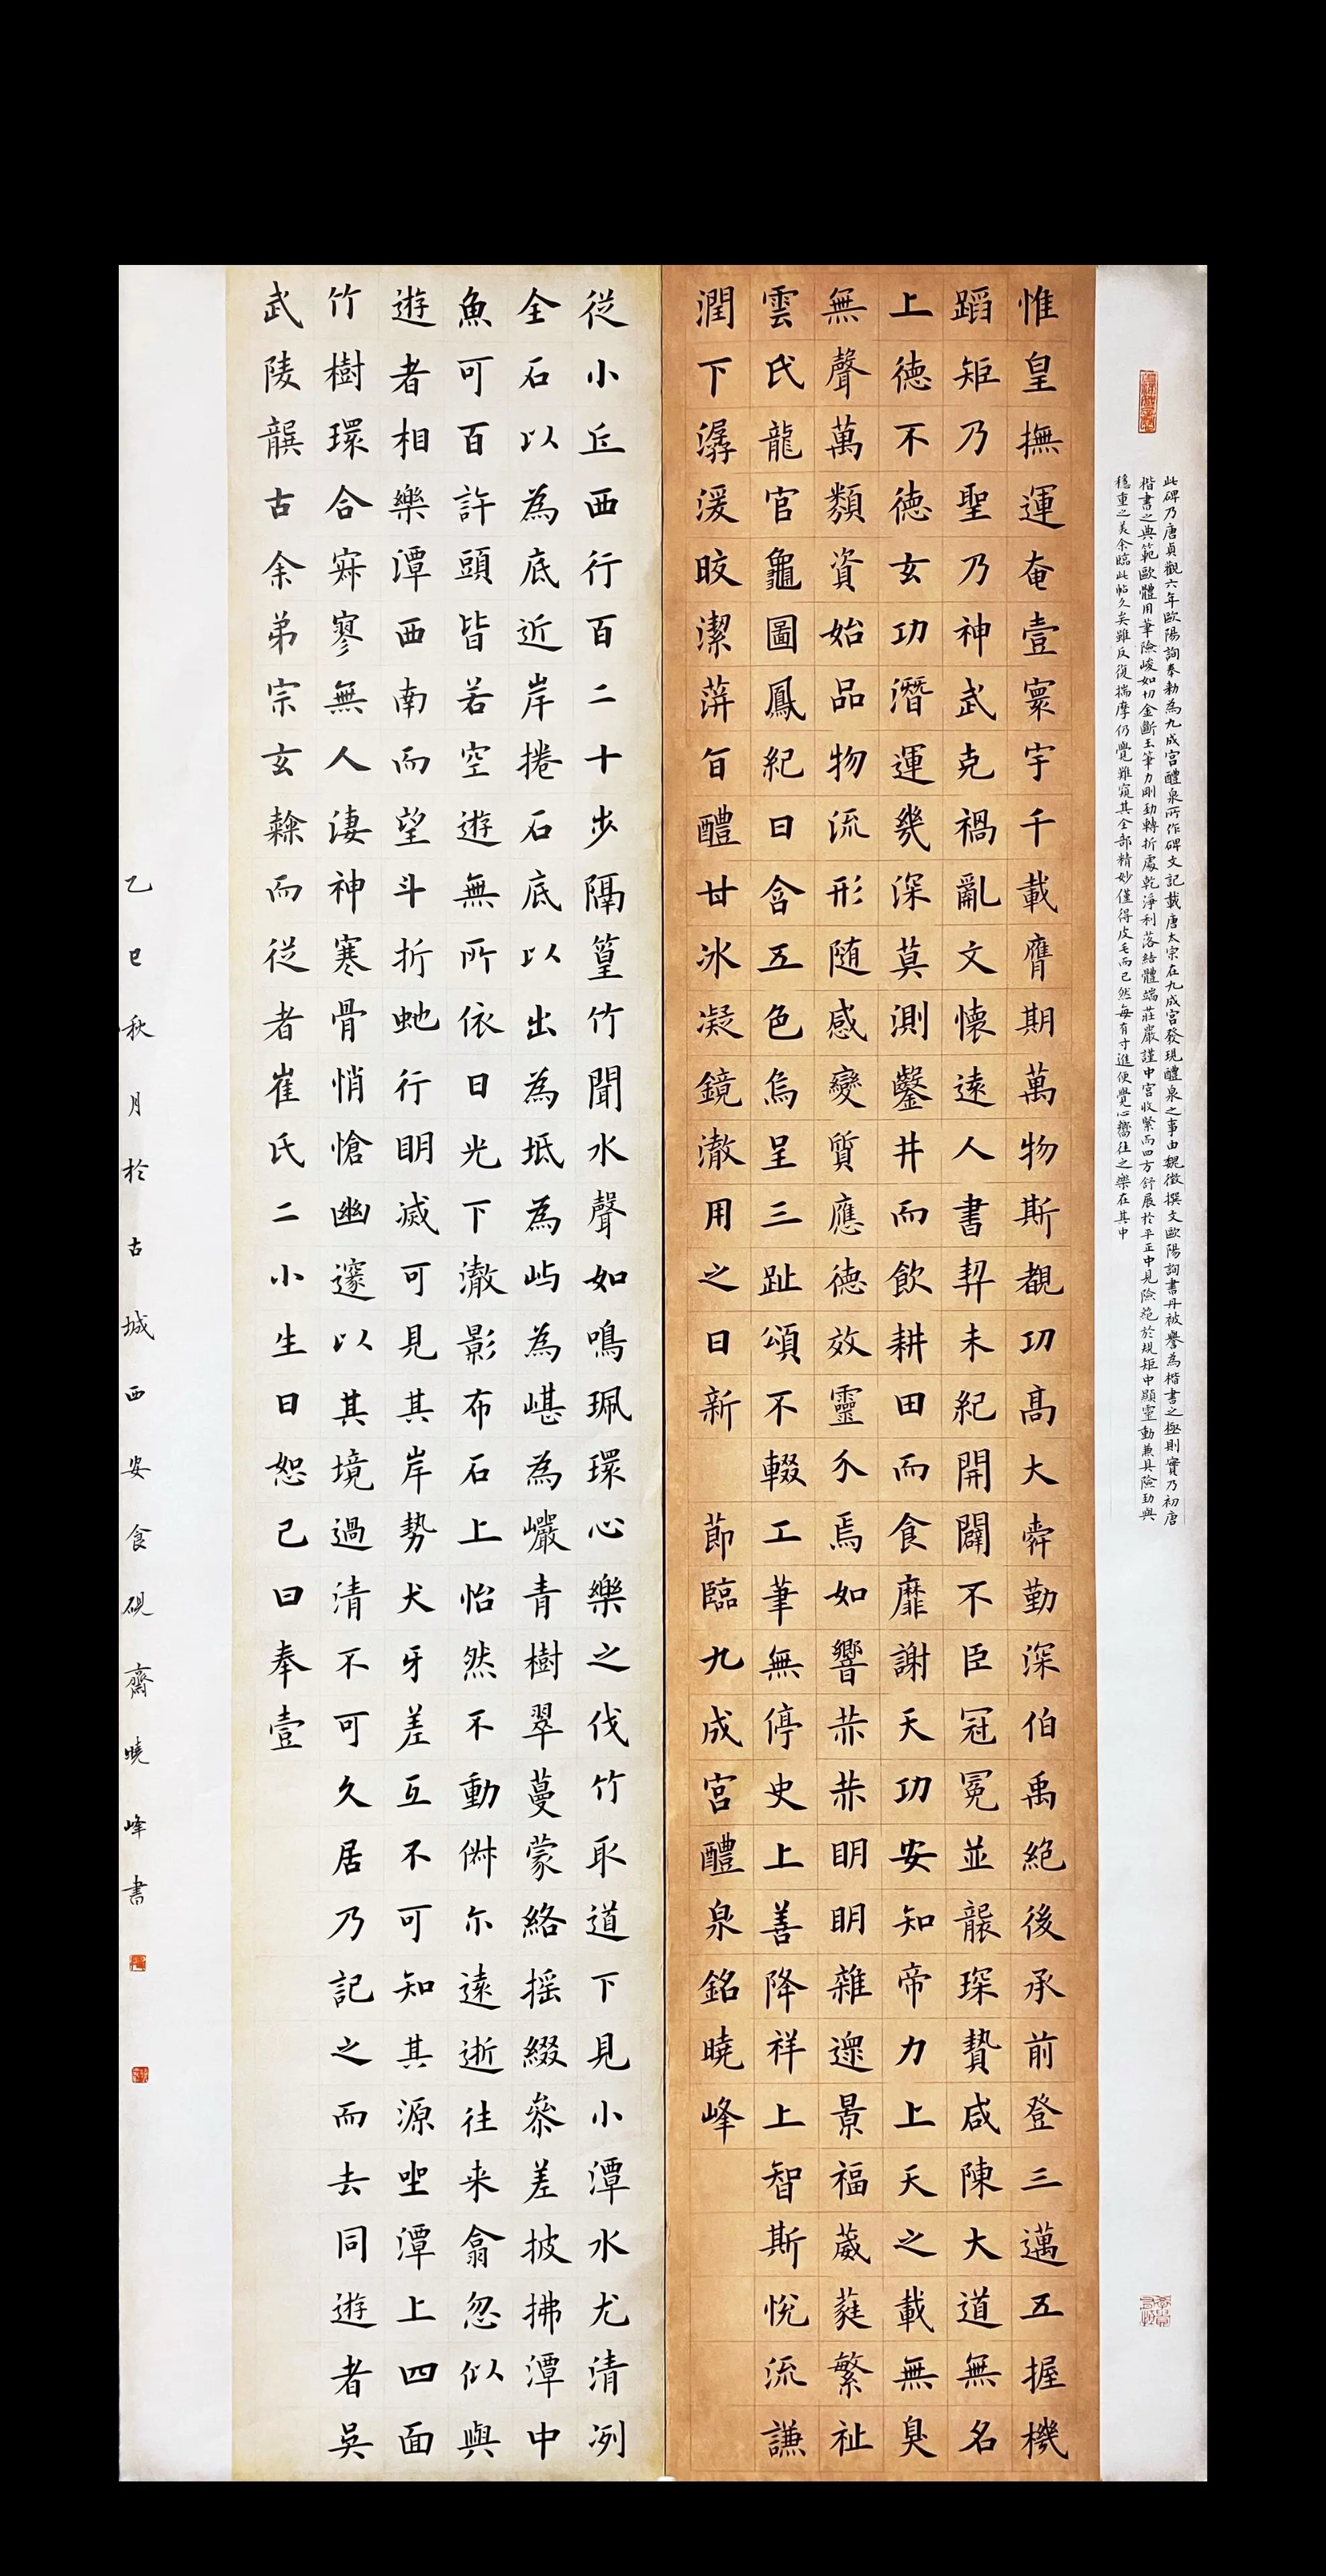 此碑乃唐貞觀六年歐陽詢奉勅為九成宮醴泉所作碑文記載唐太宗在九成宮發現醴泉之事由魏徵撰文歐陽詢書丹被譽為楷書之極則實乃初唐
楷書之典範歐體用筆險峻如切金斷玉筆力剛勁轉折處乾淨利落結體端莊嚴謹中宮收緊而四方舒展於平正中見險絕於規矩中顯靈動兼具險勁與
穩重之美余臨此帖久矣雖反復揣摩仍覺難窺其全部精妙僅得皮毛而已然每有寸進便覺心嚮往之樂在其中
惟皇撫運奄壹寰宇千載膺期萬物斯覩功高大舜勤深伯禹絕後承前登三邁五握機
蹈矩乃聖乃神武克禍亂文懷遠人書契未紀開闢不臣冠冕並襲琛贄咸陳大道無名
上德不德玄功潛運幾深莫測鑿井而飲耕田而食靡謝天功安知帝力上天之載無臭
無聲萬類資始品物流形随感變質應德效靈介焉如響赫赫明明雜遝景福葳蕤繁祉
雲氏龍官龜圖鳳紀日含五色烏呈三趾頌不輟工筆無停史上善降祥上智斯悅流謙
潤下潺湲皎潔蓱旨醴甘冰凝鏡澈用之日新 節臨九成宮醴泉銘曉峰
從小丘西行百二十步隔篁竹聞水聲如鳴珮環心樂之伐竹取道下見小潭水尤清冽
全石以為底近岸捲石底以出為坻為屿為嵁為巖青樹翠蔓蒙絡摇綴參差披拂潭中
魚可百許頭皆若空遊無所依日光下澈影布石上怡然不動俶尔遠逝往来翕忽似與
遊者相樂潭西南而望斗折虵行明滅可見其岸勢犬牙差互不可知其源坐潭上四面
竹樹環合寂寥無人淒神寒骨悄愴幽邃以其境過清不可久居乃記之而去同遊者吳
武陵龔古余弟宗玄隸而從者崔氏二小生曰恕己曰奉壹
乙巳秋月於古城西安食硯齋曉峰書